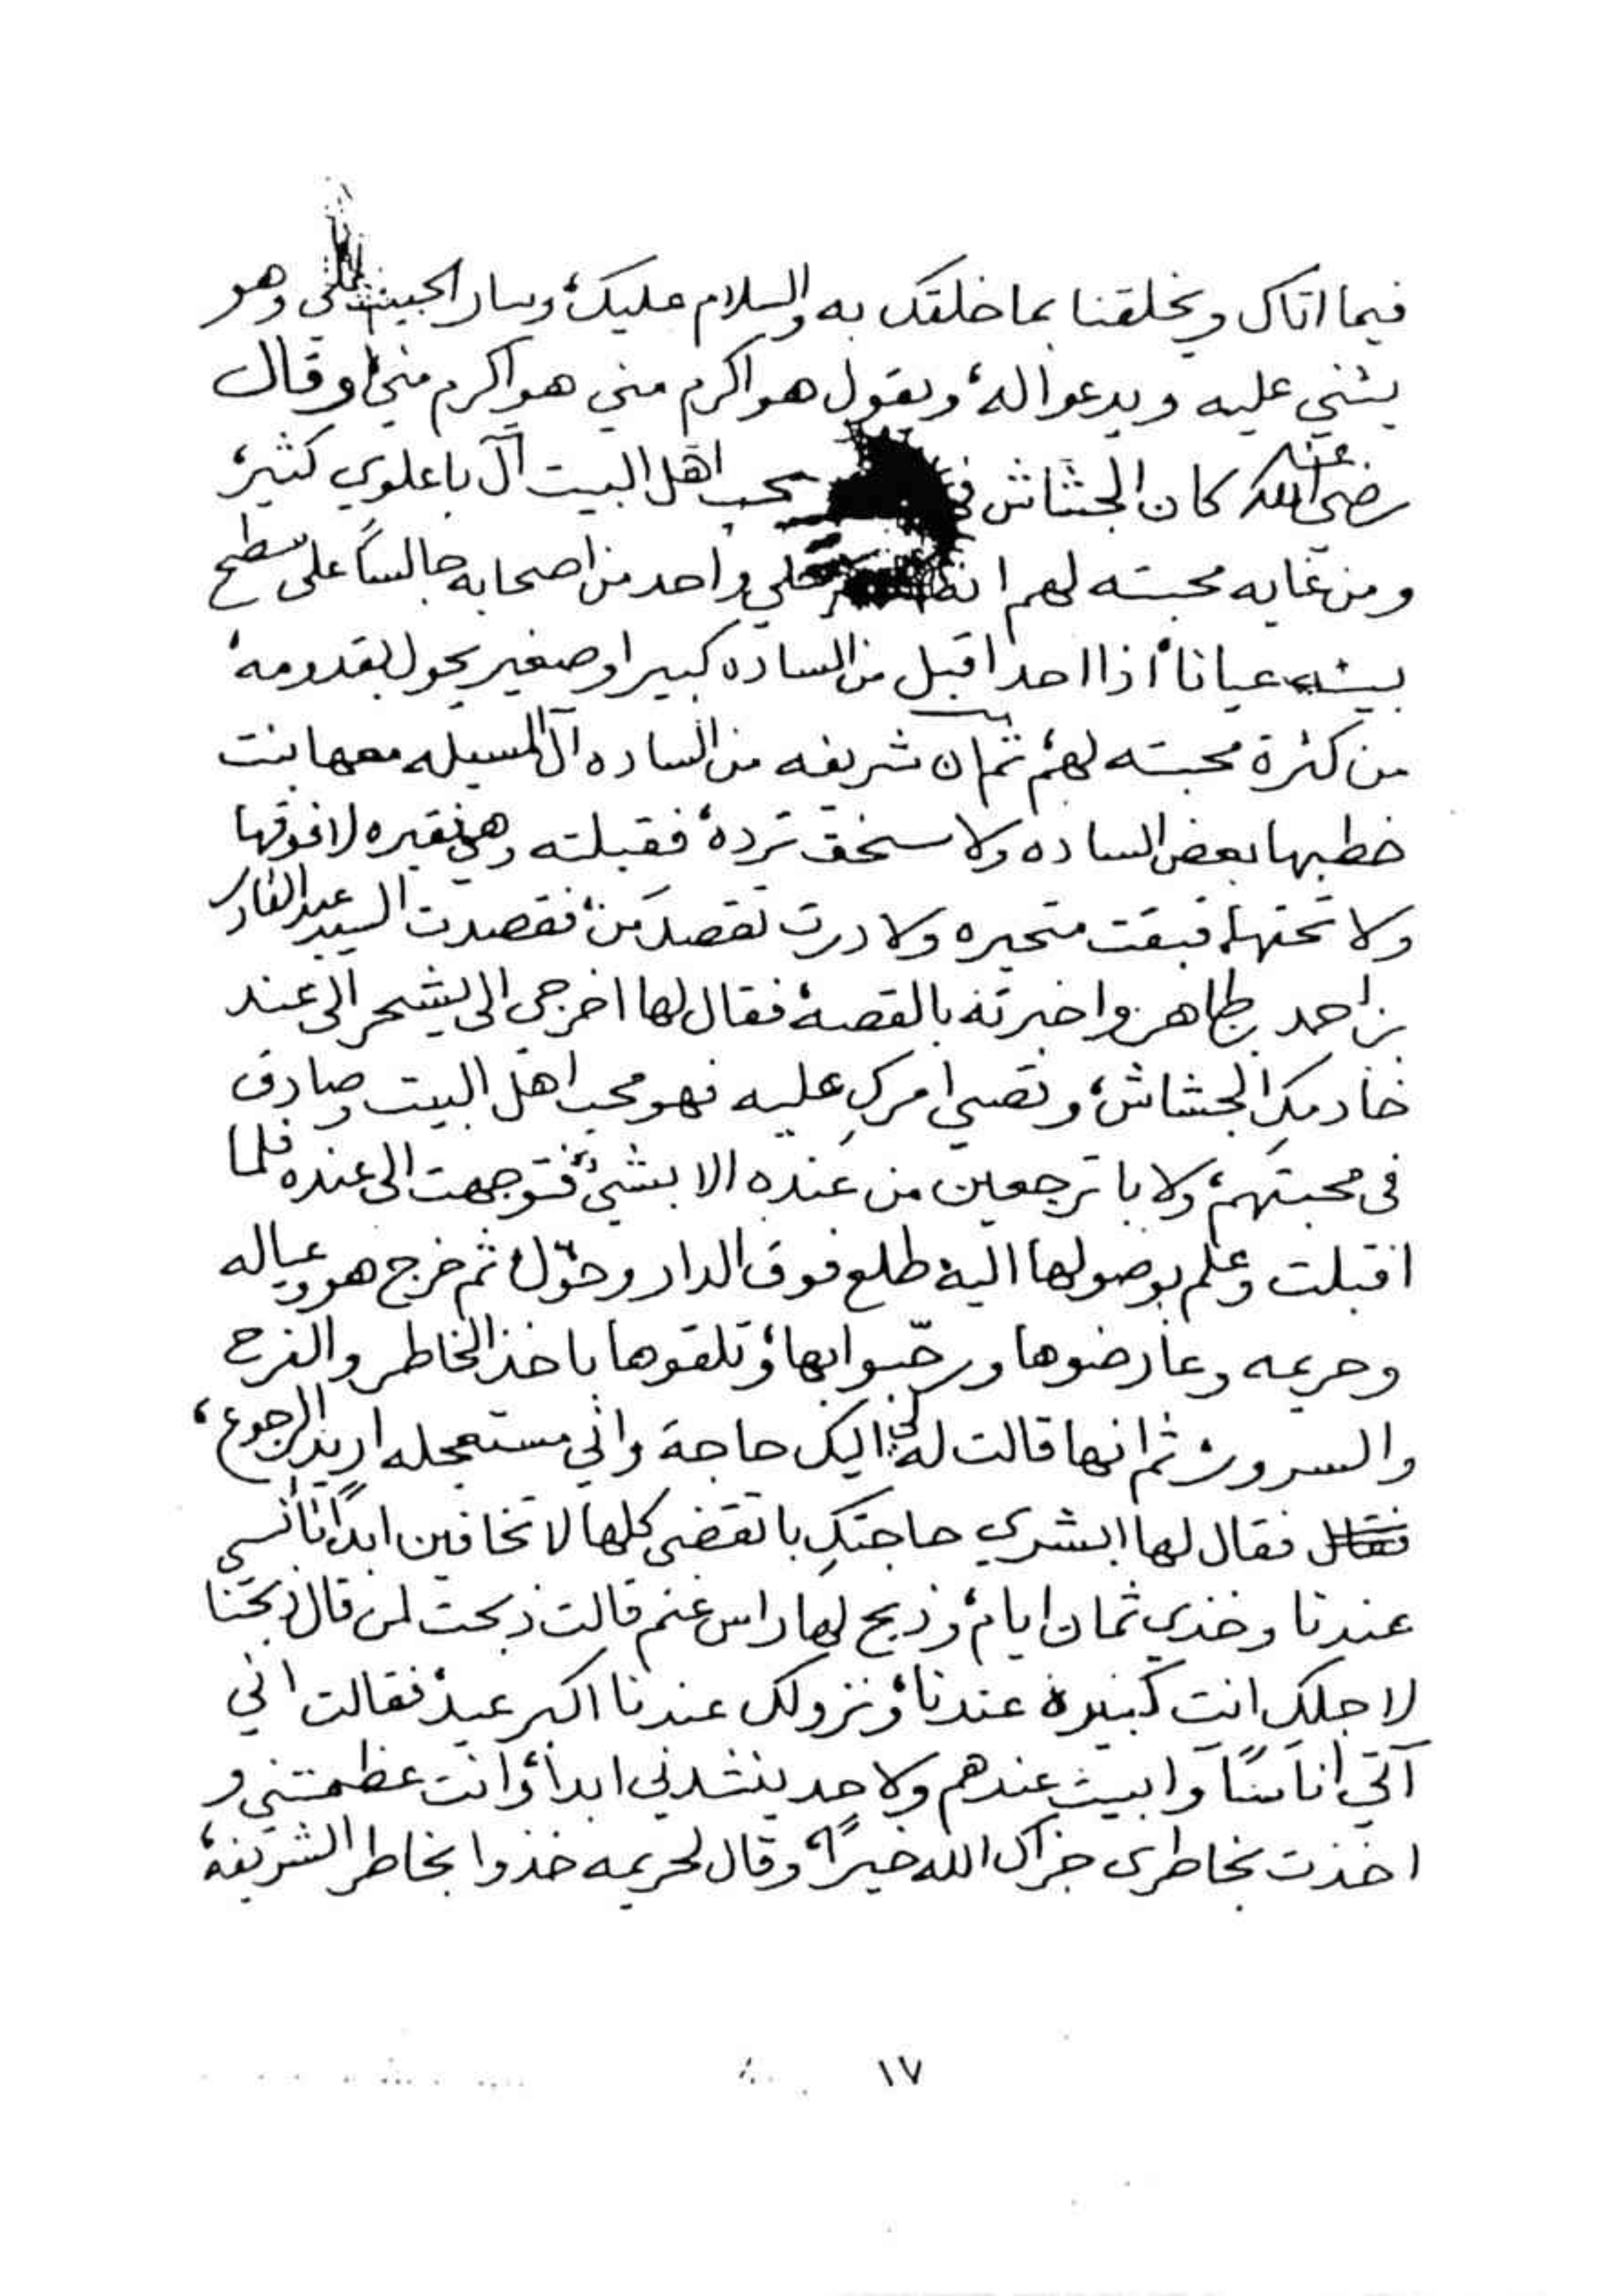 فيما اتاك ويخلقنا بما خلقك به والسلام عليك، وسار الحبيشي وهو
يثني عليه ويدعوا له، ويقول هو اكرم مني هو اكرم مني، وقال
رضي الله عنه كان الجشاش في يحب اهل البيت آل باعلوي كثير،
ومن غايه محبته لهم انه واحد من اصحابه جالساً على سطح
بيته عيانا، اذا احد اقبل من الساده كبير او صغير يحول لقدومه،
من كثرة محبته لهم، ثم ان شريفه من الساده آل المسيله معها بنت
خطبها بعض الساده ولا سخت ترده، فقبلته وهي فقيره لا فوقها
ولا تحتها، فبقت متحيره ولا درت تقصد من، فقصدت السيد عبدالقادر
بن احمد بن طاهر واخبرته بالقصه، فقال لها اخرجي الى الشحر الى عند
خادمكِ الجشاش، وقصي امركِ عليه فهو محب اهل البيت وصادق
في محبتهم، ولا با ترجعين من عنده الا بشيء، فتوجهت الى عنده فلما
اقبلت وعلم بوصولها اليه طلع فوق الدار وحوّل، ثم خرج هو وعياله
وحريمه وعارضوها ورحّبوا بها، وتلقوها باخذ الخاطر والفرح
والسرور، ثم انها قالت له لي اليك حاجة واني مستعجله اريد الرجوع،
فقال فقال لها ابشري حاجتكِ با تقضى كلها لا تخافين ابداً نانسي
عندنا وخذي ثمان ايام، وذبح لها راس غنم قالت ذبحت لمن قال ذبحنا
لاجلك انتِ كبيرة عندنا، ونزولك عندنا اكبر عيد، فقالت اني
آتي أناساً وابيت عندهم ولا حد ينشدني ابدا، وانت عظمتني و
اخذت بخاطري جزاك الله خيراً، وقال لحريمه خذوا بخاطر الشريفه،
١٧